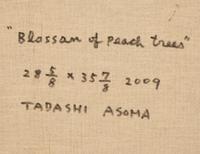 "Blossam of peach trees"
28 5/8 × 35 7/8 2009
TADASHI ASOMA